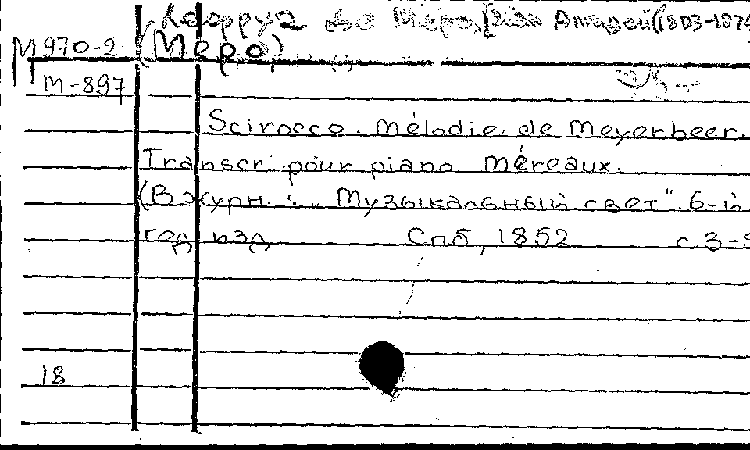 Лефруа де Меро, [Жан Амедей (1803-1874
М970-2 (Меро)
М-897
Scirocco. Mélodie de Meyerbeer.
Transcr. pour piano Méreaux.
(В журн.: „Музыкальный свет" 6-й
год изд. Спб, 1852 с. 3-
18